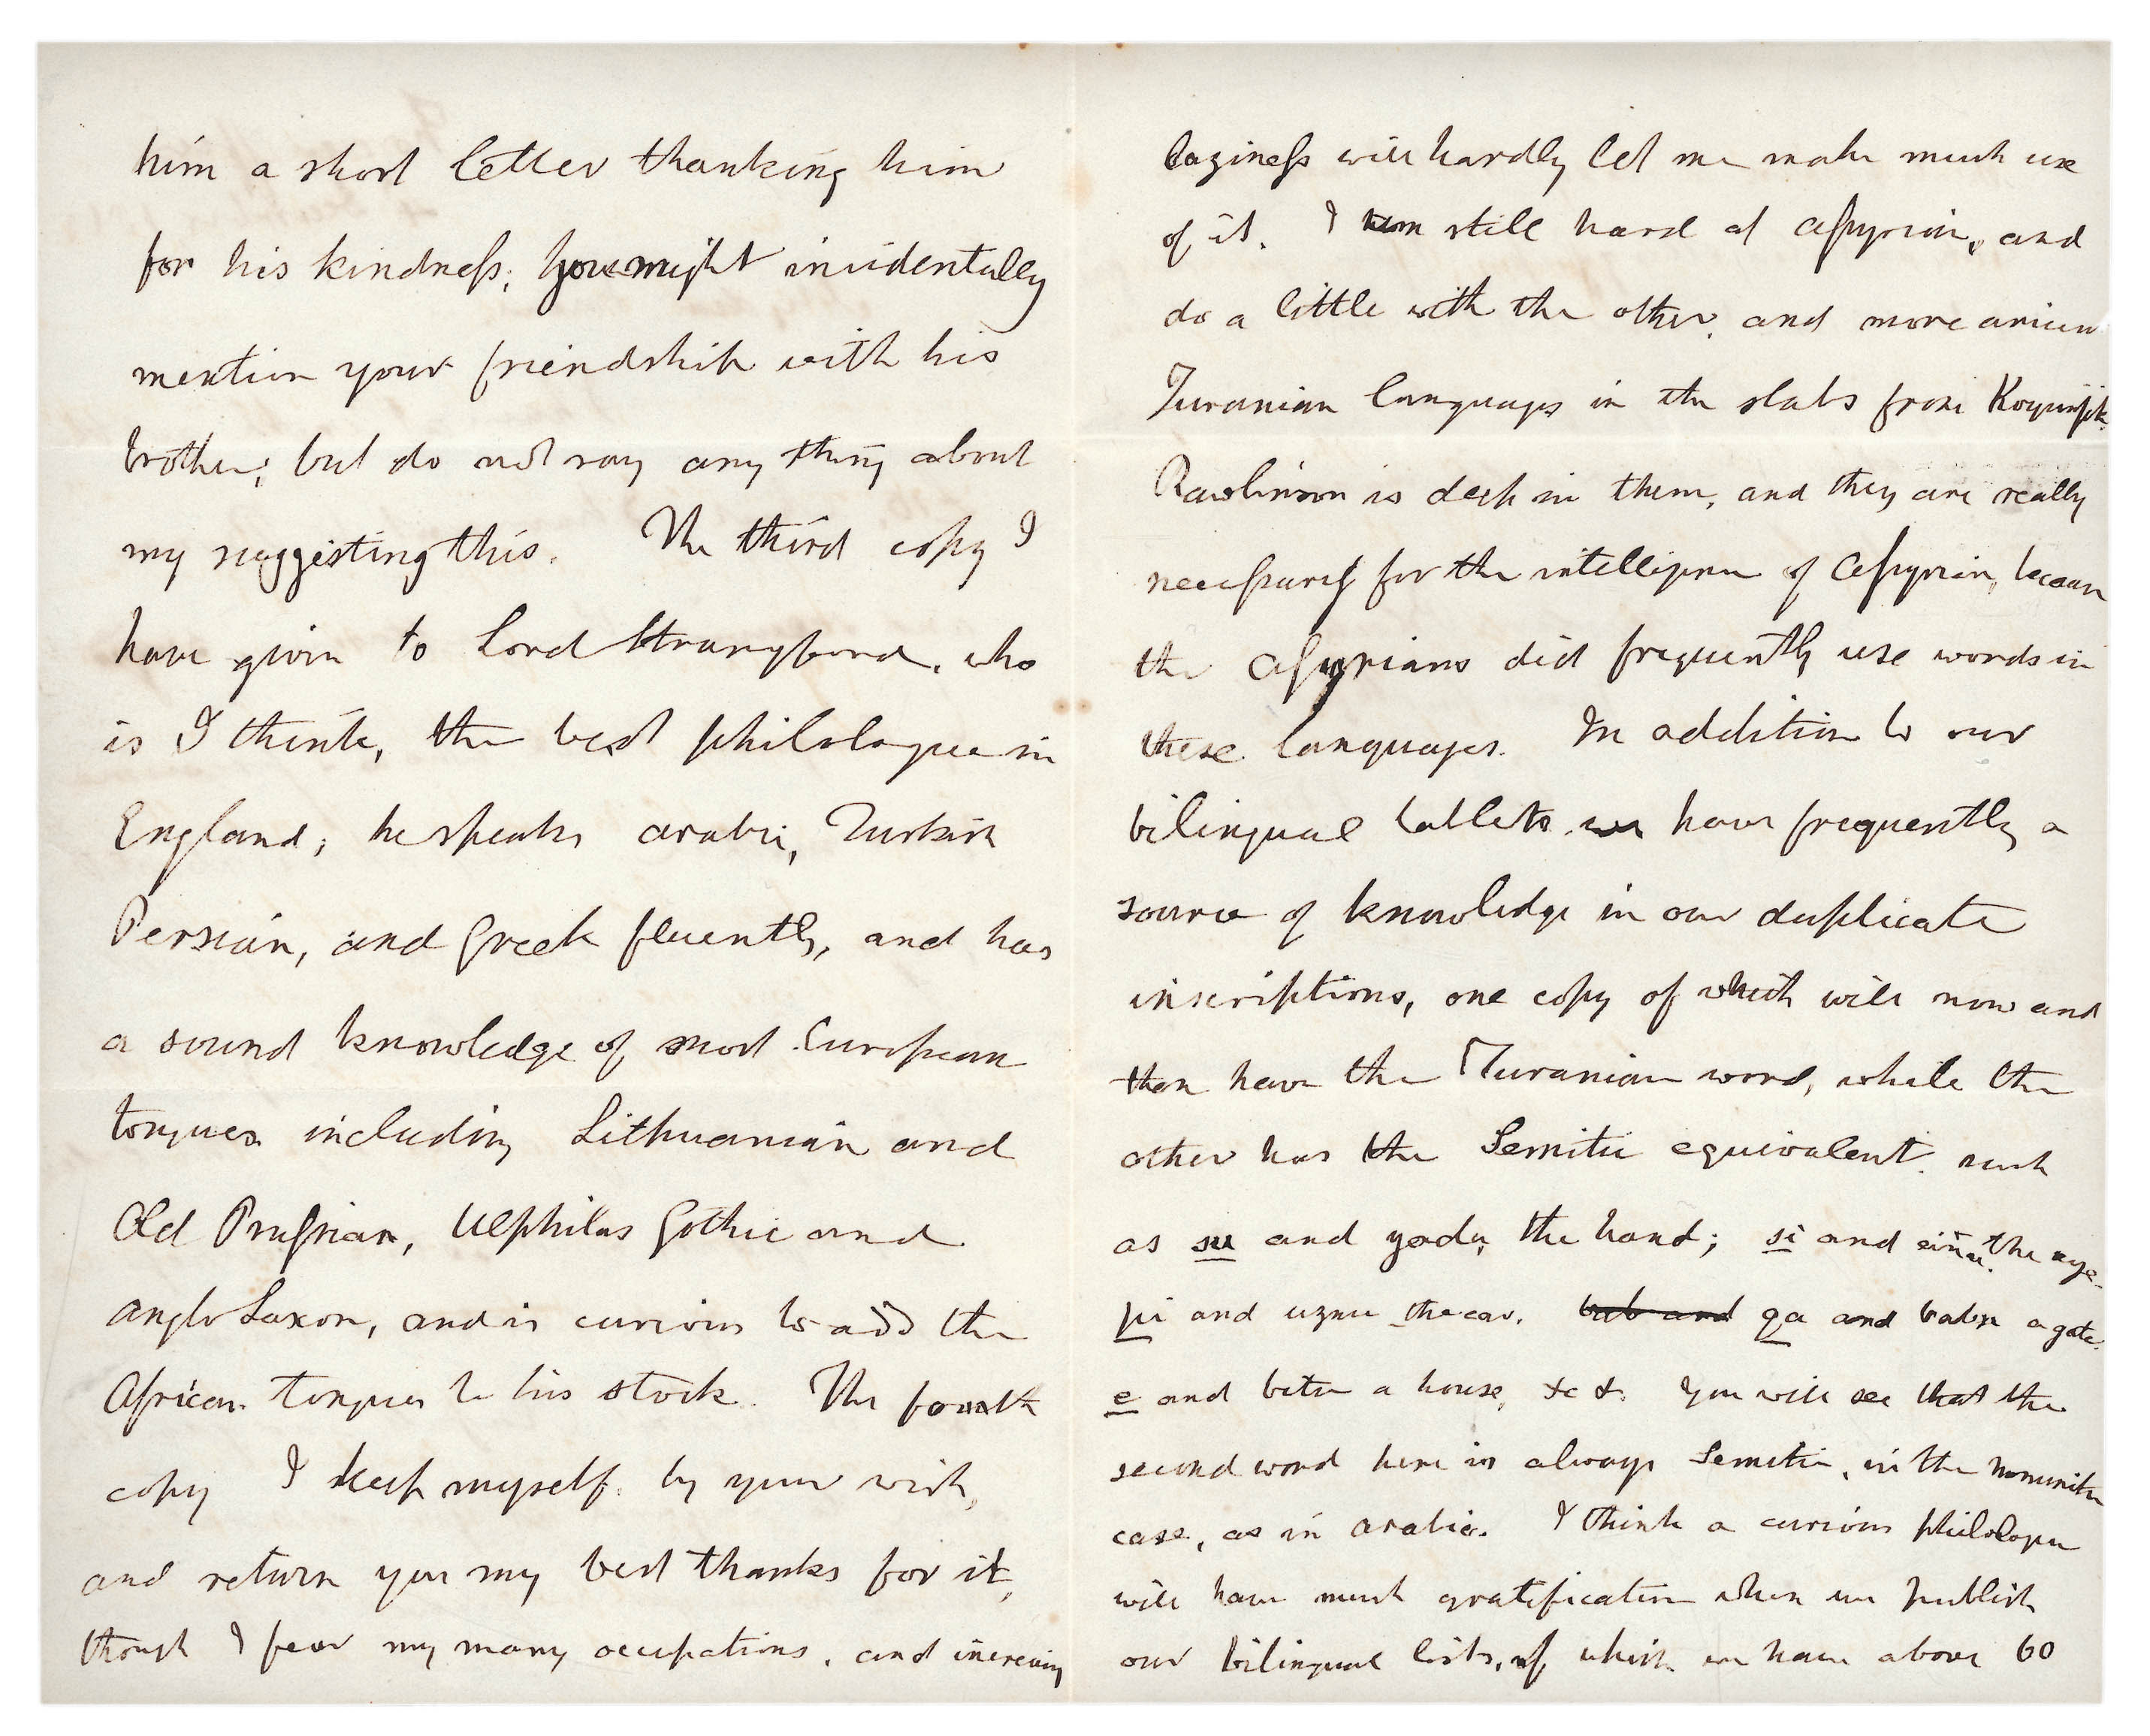 him a short letter thanking him
for his kindness; you might incidentally
mention your friendship with his
brother; but do not say any thing about
my suggesting this. The third copy I
have given to Lord Strangford, who
is I think, the best philologue in
England; he speaks Arabic, Turkish
Persian, and Greek fluently, and has
a sound knowledge of most European
tongues including Lithuanian and
Old Prussian, Ulphilas Gothic and
Anglo Saxon, and is curious to add the
African tongues to his stock. The fourth
copy I keep myself by your wish,
and return you my best thanks for it,
though I fear my many occupations, and increasing
laziness will hardly let me make much use
of it. I am still hard at Assyrian, and
do a little with the other, and more ancient
Turanian languages in the slabs from Koyunjik.
Rawlinson is deep in them, and they are really
necessary for the intelligence of Assyrian, because
the Assyrians did frequently use words in
these languages. In addition to our
bilingual tablets we have frequently a
source of knowledge in our duplicate
inscriptions, one copy of which will now and
then have the Turanian word, while the
other has the Semitic equivalent. such
as su and yadu, the hand; si and einu. the eye.
pi and uznu the ear. bab and ga and babu a gate.
e and betu a house, &c &. You will see that the
second word here is always Semitic, in the nominative
case, as in Arabic. I think a curious philologue
will have much gratification when we publish
our bilingual lists, of which we have above 60